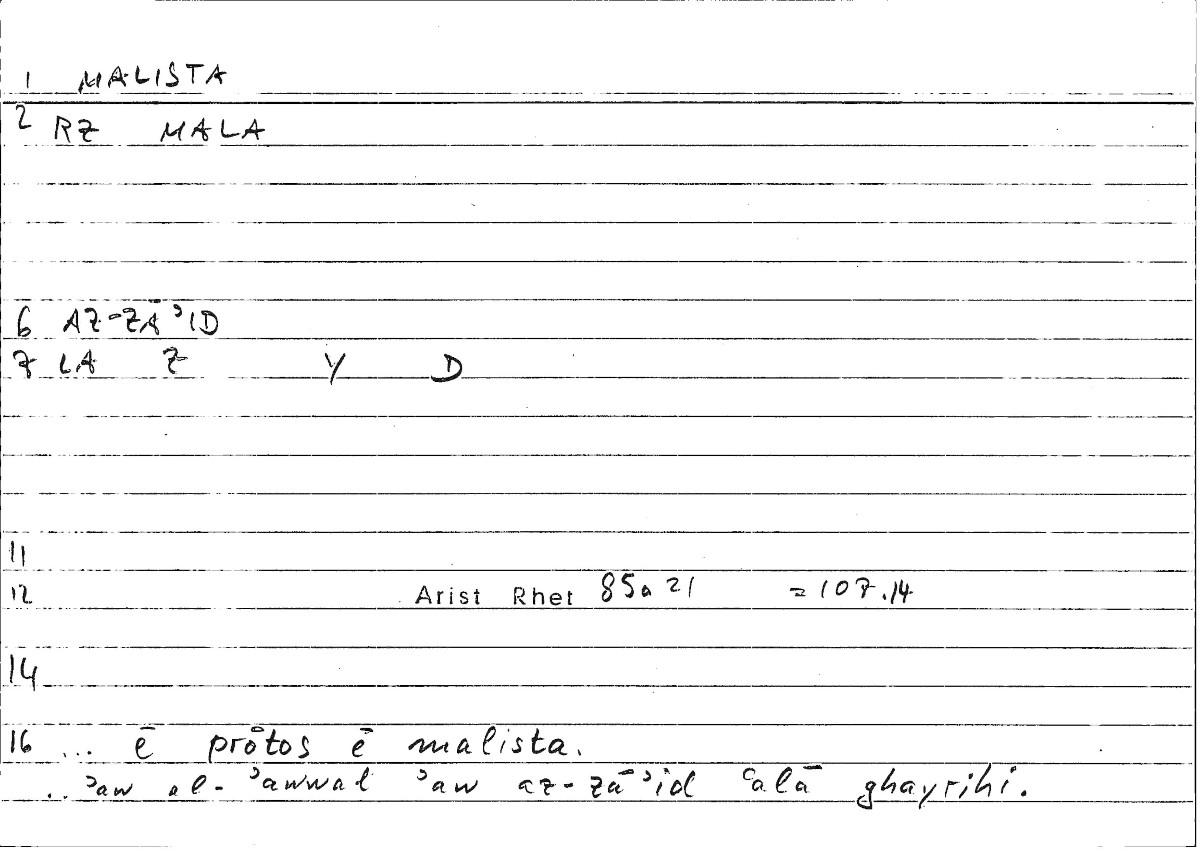 1 MALISTA
2 RZ MALA
6 AZ-ZĀʾID
7 LA Z Y D
11
12 Arist Rhet 85a21 =107.14
14
16 ... ē prôtos ē malista.
..ʾaw al-ʾawwal ʾaw az-zāʾid ʿalā ghayrihi.